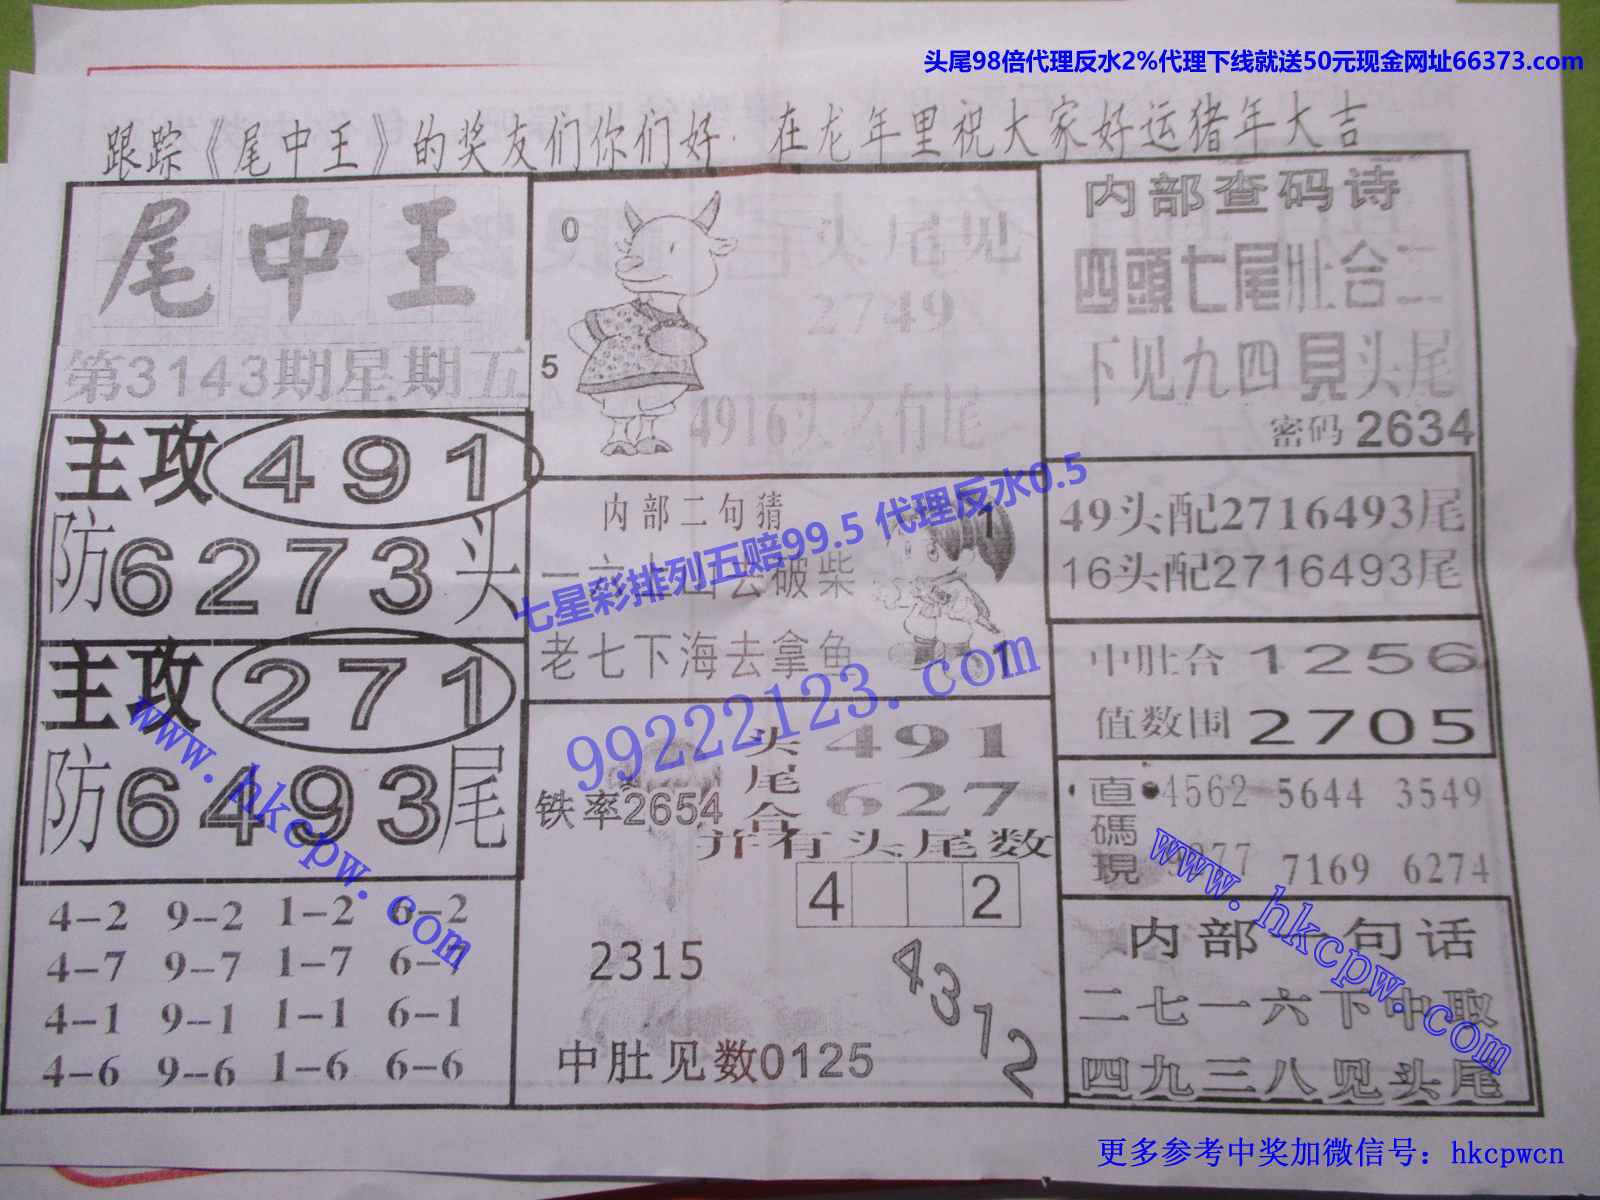 头尾98倍代理反水2%代理下线就送50元现金网址66373.com
跟踪《尾中王》的奖友们你们好·在龙年里祝大家好运猪年大吉
尾中王
第3143期星期五
主攻491
防6273头
主攻271
防6493尾
4-2 9-2 1-2 6-2
4-7 9-7 1-7 6-7
4-1 9-1 1-1 6-1
4-6 9-6 1-6 6-6
0
5
头尾见
2749
4916头么有尾
内部二句猜
上山去破柴
老七下海去拿鱼
1
1
头491
尾
合627
铁率2654
并有头尾数
4 2
2315
4312
中肚见数0125
内部查码诗
四頭七尾肚合二
下见九四見头尾
密码2634
49头配2716493尾
16头配2716493尾
中肚合1256
值数围2705
直碼現
4562 5644 3549
7169 6274
内部一句话
二七一六下中取
四九三八见头尾
七星彩排列五赔99.5 代理反水0.5
99222123.com
www.hkcpw.com
www.hkcpw.com
更多参考中奖加微信号：hkcpwcn